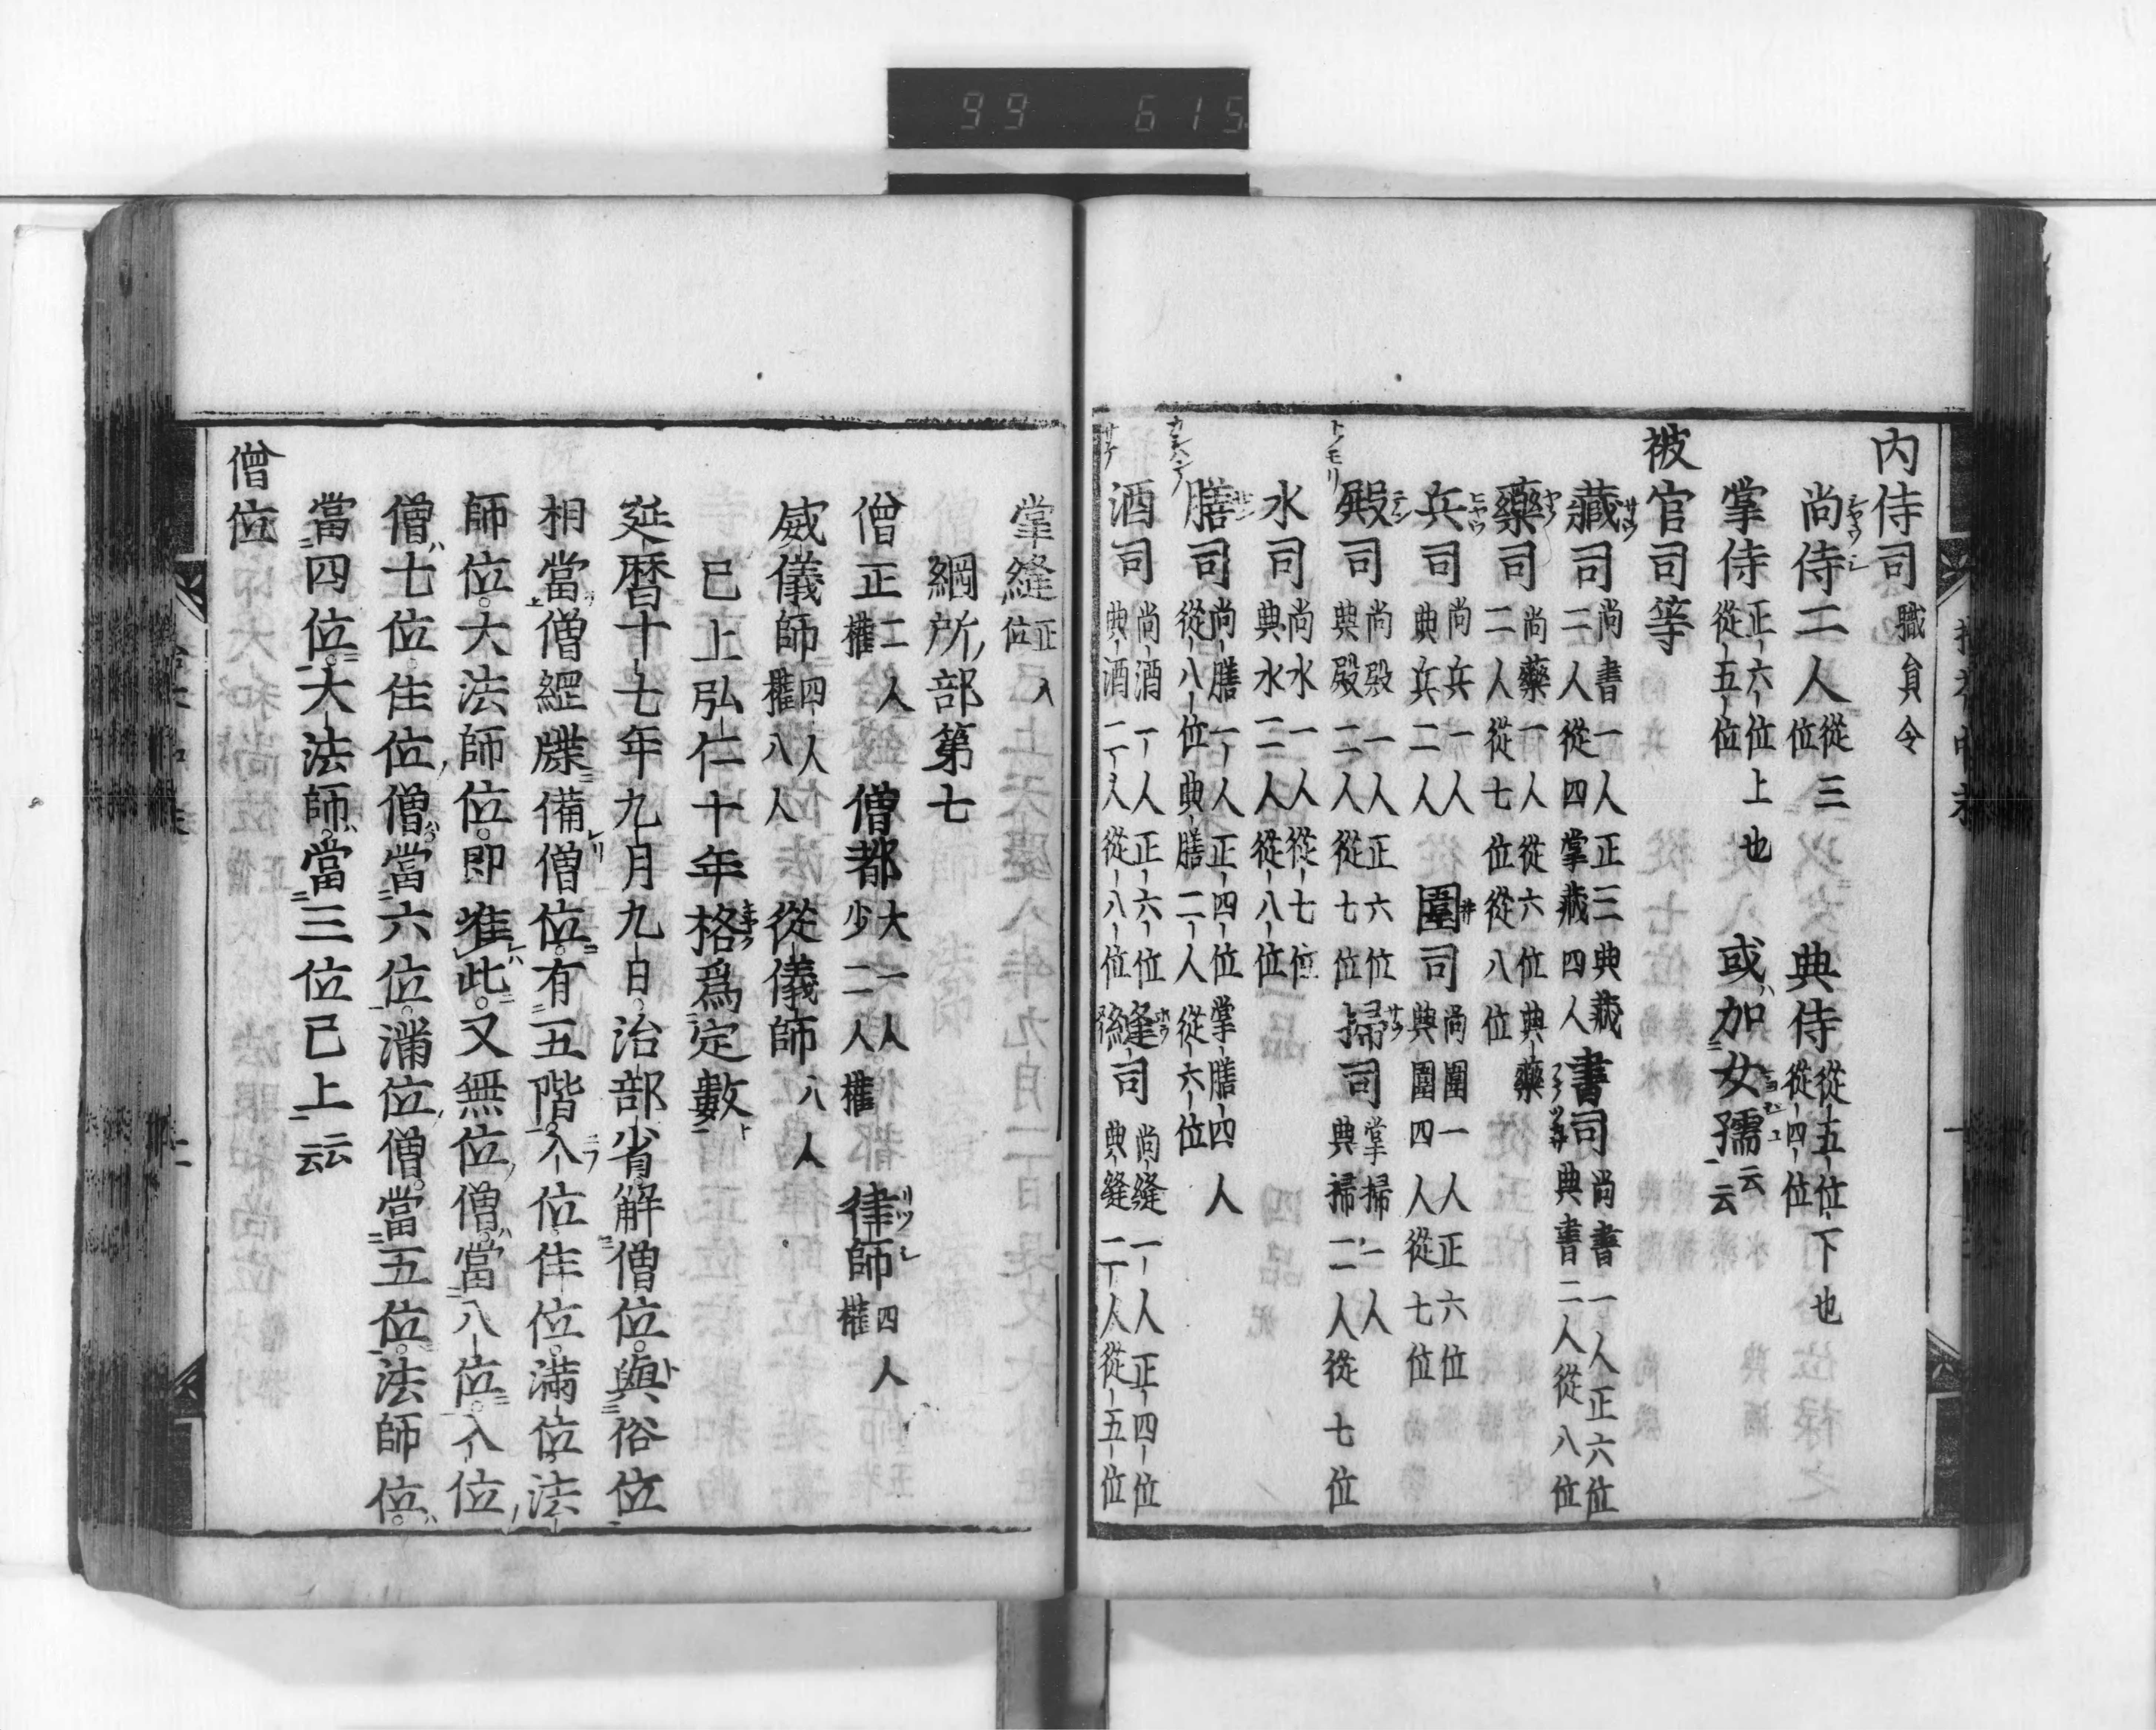 99 615
内侍司 職員令
尚侍二人 從三位 典侍 從五位下也 從四位
掌侍 正六位上也 從五位 或加女孺云云
被官司等
藏司 尚書一人正三典藏二人從四掌藏四人 書司 尚書一人正六位典書二人從八位
藥司 尚藥一人從六位典藥二人從七位從八位
兵司 尚兵一人典兵二人 闈司 尚闈一人正六位典闈四人從七位
殿司 尚殿一人正六位典殿二人從七位 掃司 掌掃一人典掃二人從七位
水司 尚水一人從七位典水二人從八位
膳司 尚膳一人正四位掌膳四人從八位典膳二人從六位
酒司 尚酒一人正六位典酒二人從八位 縫司 尚縫一人正四位典縫二人從五位
掌縫 正八位
綱所部第七
僧正 二人權 僧都 大一人少二人權 律師 四人權
威儀師 四人權八人 從儀師 八人
已上弘仁十年格爲定數
延暦十七年九月九日治部省解僧位與俗位
相當僧綱牒備僧位有五階入位住位滿位法
師位大法師位即准此又無位僧當八位入位
僧七位住位僧當六位滿位僧當五位法師位
當四位大法師當三位已上云云
僧位